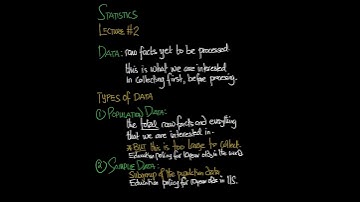 STATISTICS
LECTURE #2
DATA: raw facts yet to be processed.
this is what we are interested
in collecting first, before procesing.
TYPES OF DATA
① POPULATION DATA:
the total raw facts and everything
that we are interested in.
BUT this is too large to collect.
Education policy for 10year olds in the world
② SAMPLE DATA:
Subgroup of the population data
Education policy for 10year olds in US.